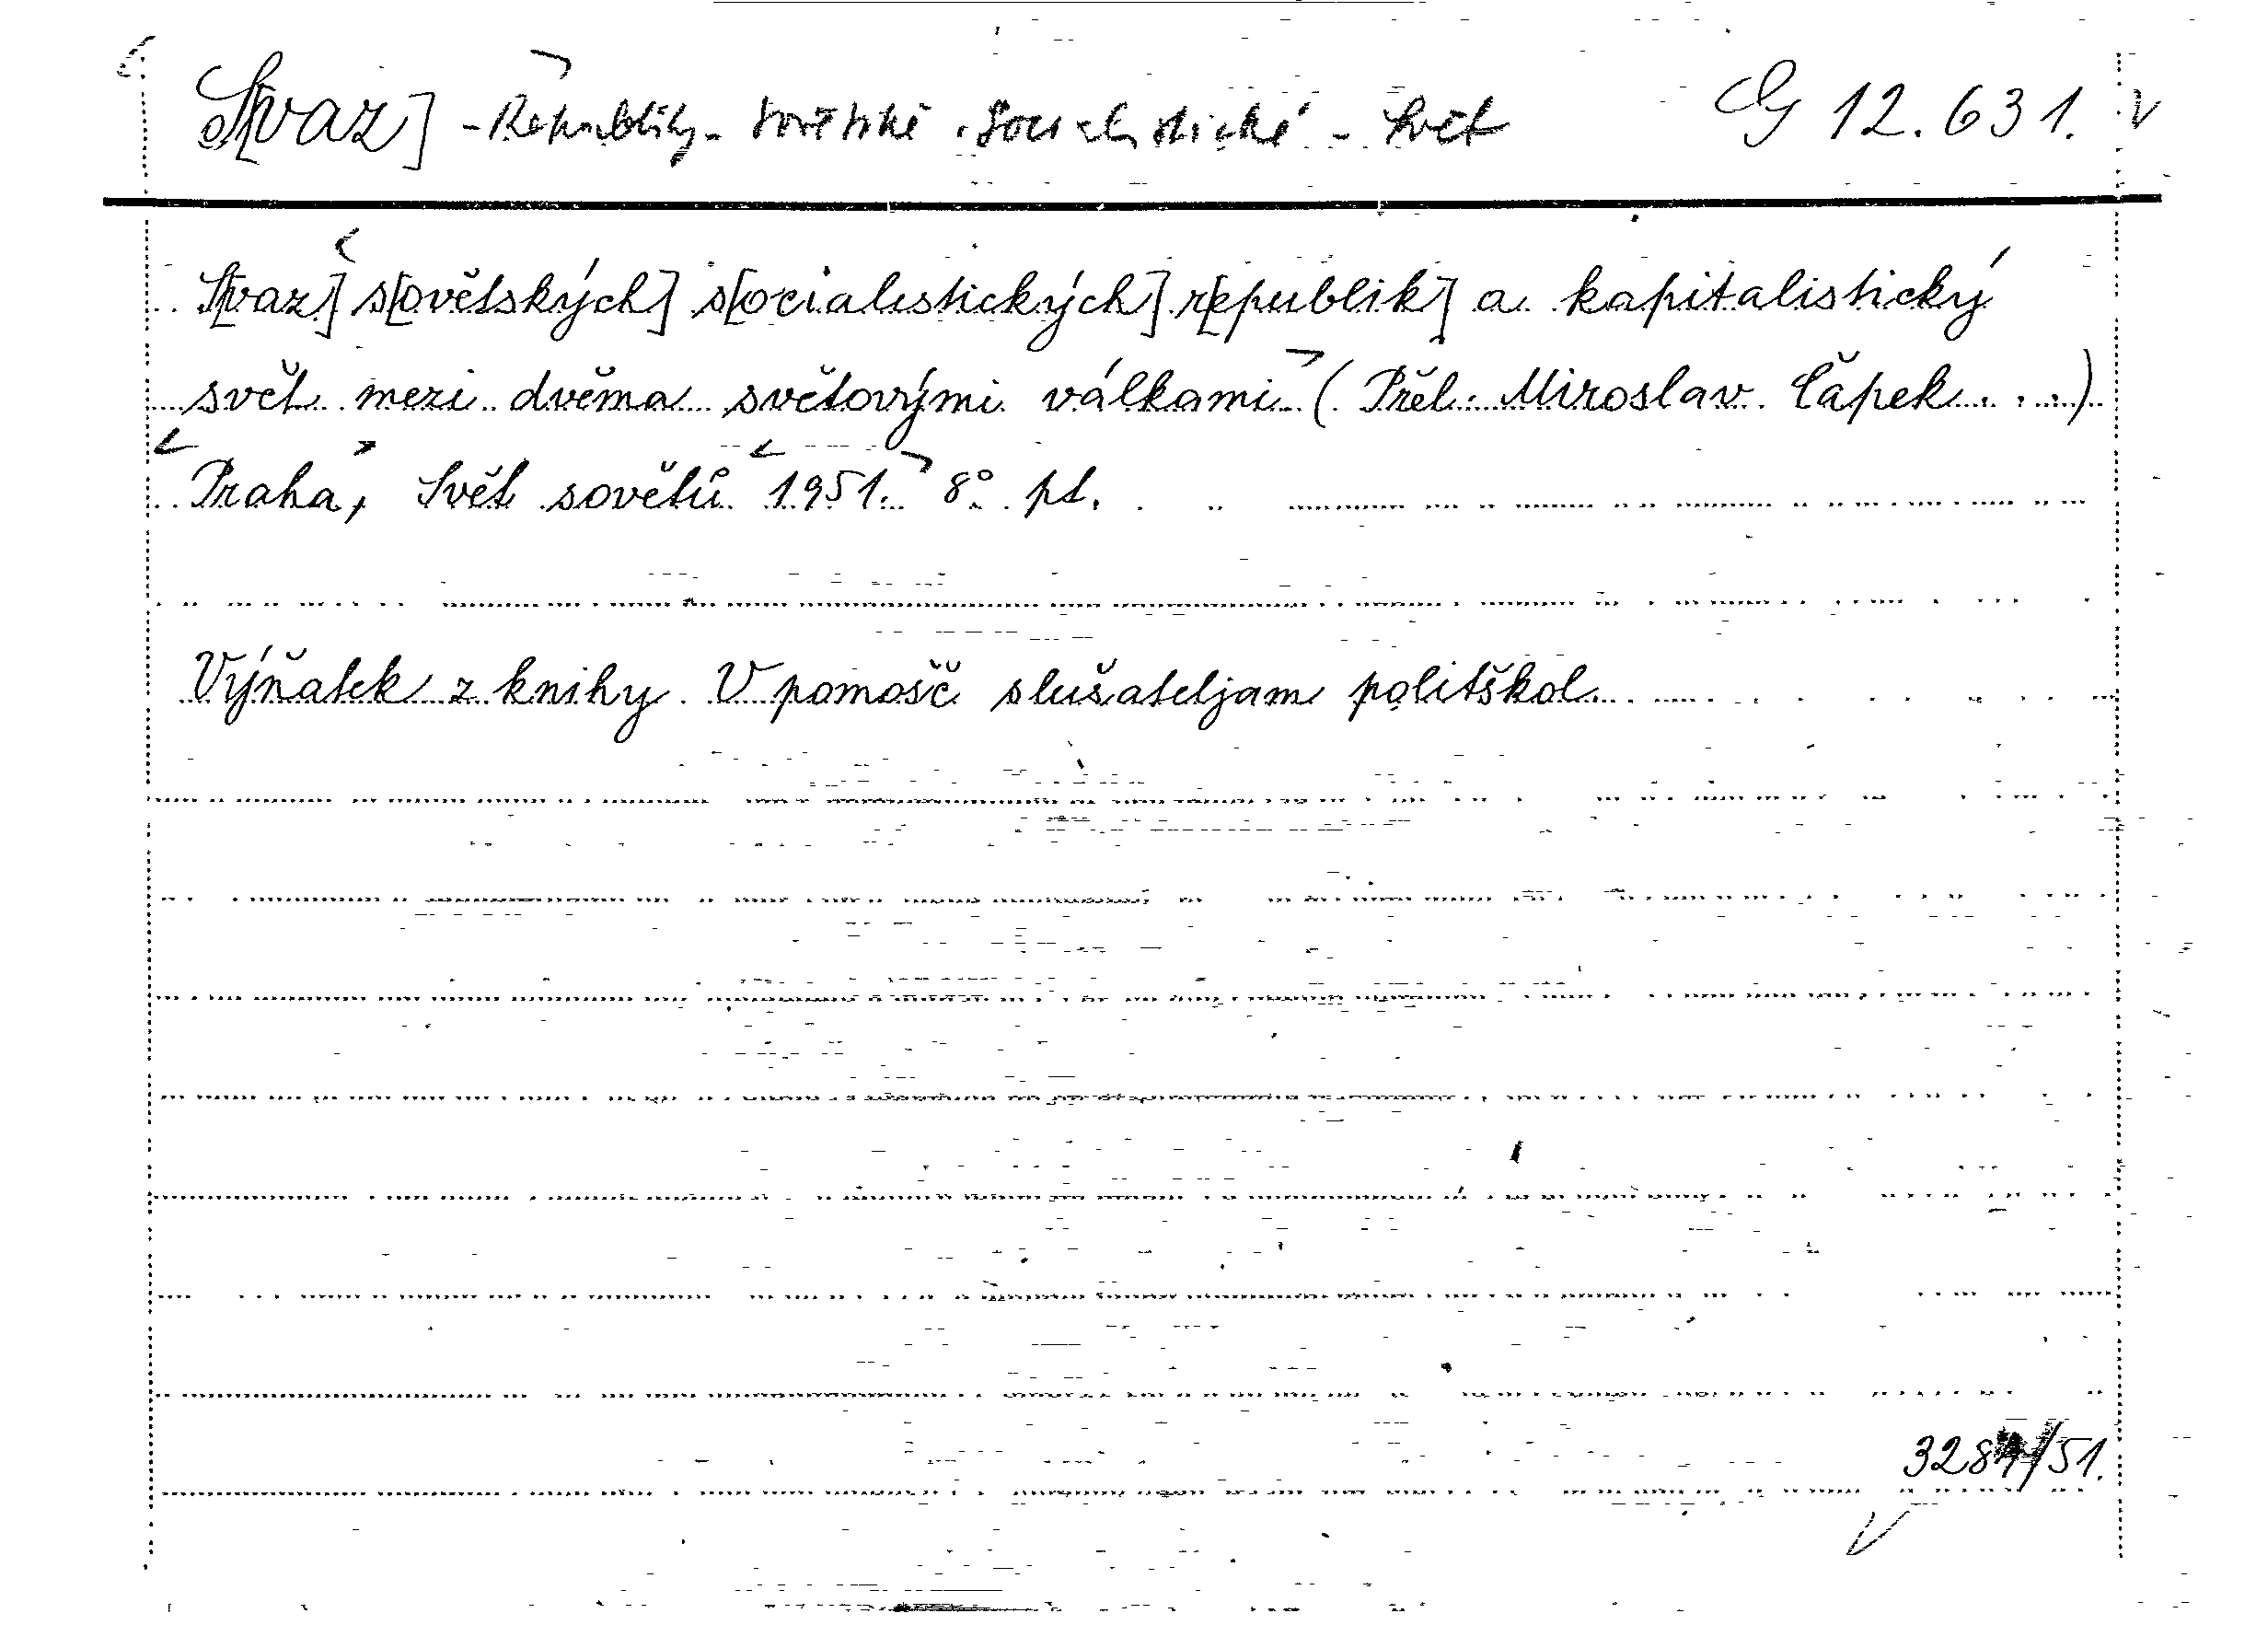 S[vaz] - Republiky - sovětské socialistické - Svět G 12.631.
S[vaz] s[ovětských] s[ocialistických] r[epublik] a kapitalistický
svět mezi dvěma světovými válkami (Přel. Miroslav Čapek...)
Praha, Svět sovětů 1951. 8° pt.
Výňatek z knihy V pomošč slušateljam politškol